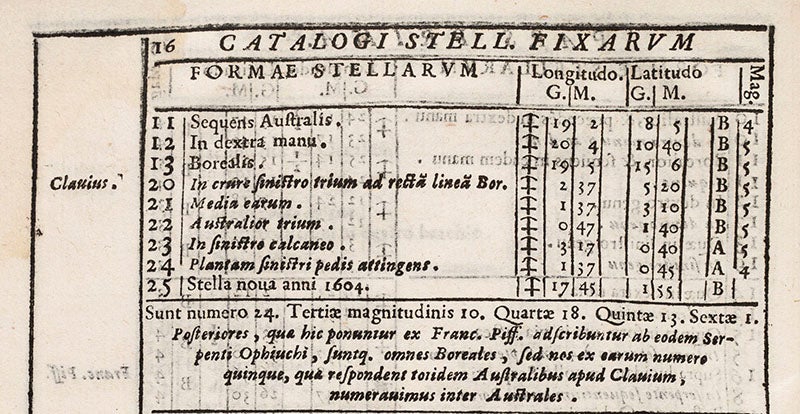 16 CATALOGI STELL. FIXARVM
FORMAE STELLARVM Longitudo. Latitudo Mag.
G. M. G. M.
11 Sequens Auſtralis. ♐ 19 2 8 5 B 4
12 In dextra manu. ♐ 20 4 10 40 B 5
13 Borealis. ♐ 19 5 15 6 B 5
Clavius. 20 In crure ſiniſtro trium ad rectã lineã Bor. ♐ 2 37 5 20 B 5
21 Media earum. ♐ 1 37 3 10 B 5
22 Auſtralior trium. ♐ 0 47 1 40 B 5
23 In ſiniſtro calcaneo. ♐ 3 17 0 40 A 5
24 Plantam ſiniſtri pedis attingens. ♐ 1 37 0 45 A 4
25 Stella noua anni 1604. ♐ 17 45 1 55 B
Sunt numero 24. Tertiæ magnitudinis 10. Quartæ 18. Quintæ 13. Sextæ 1.
Poſteriores, quæ hic ponuntur ex Franc. Piff. adſcribuntur ab eodem Ser-
penti Ophiuchi, ſuntq. omnes Boreales, ſed nos ex earum numero
quinque, quæ reſpondent totidem Auſtralibus apud Clauium,
numerauimus inter Auſtrales.